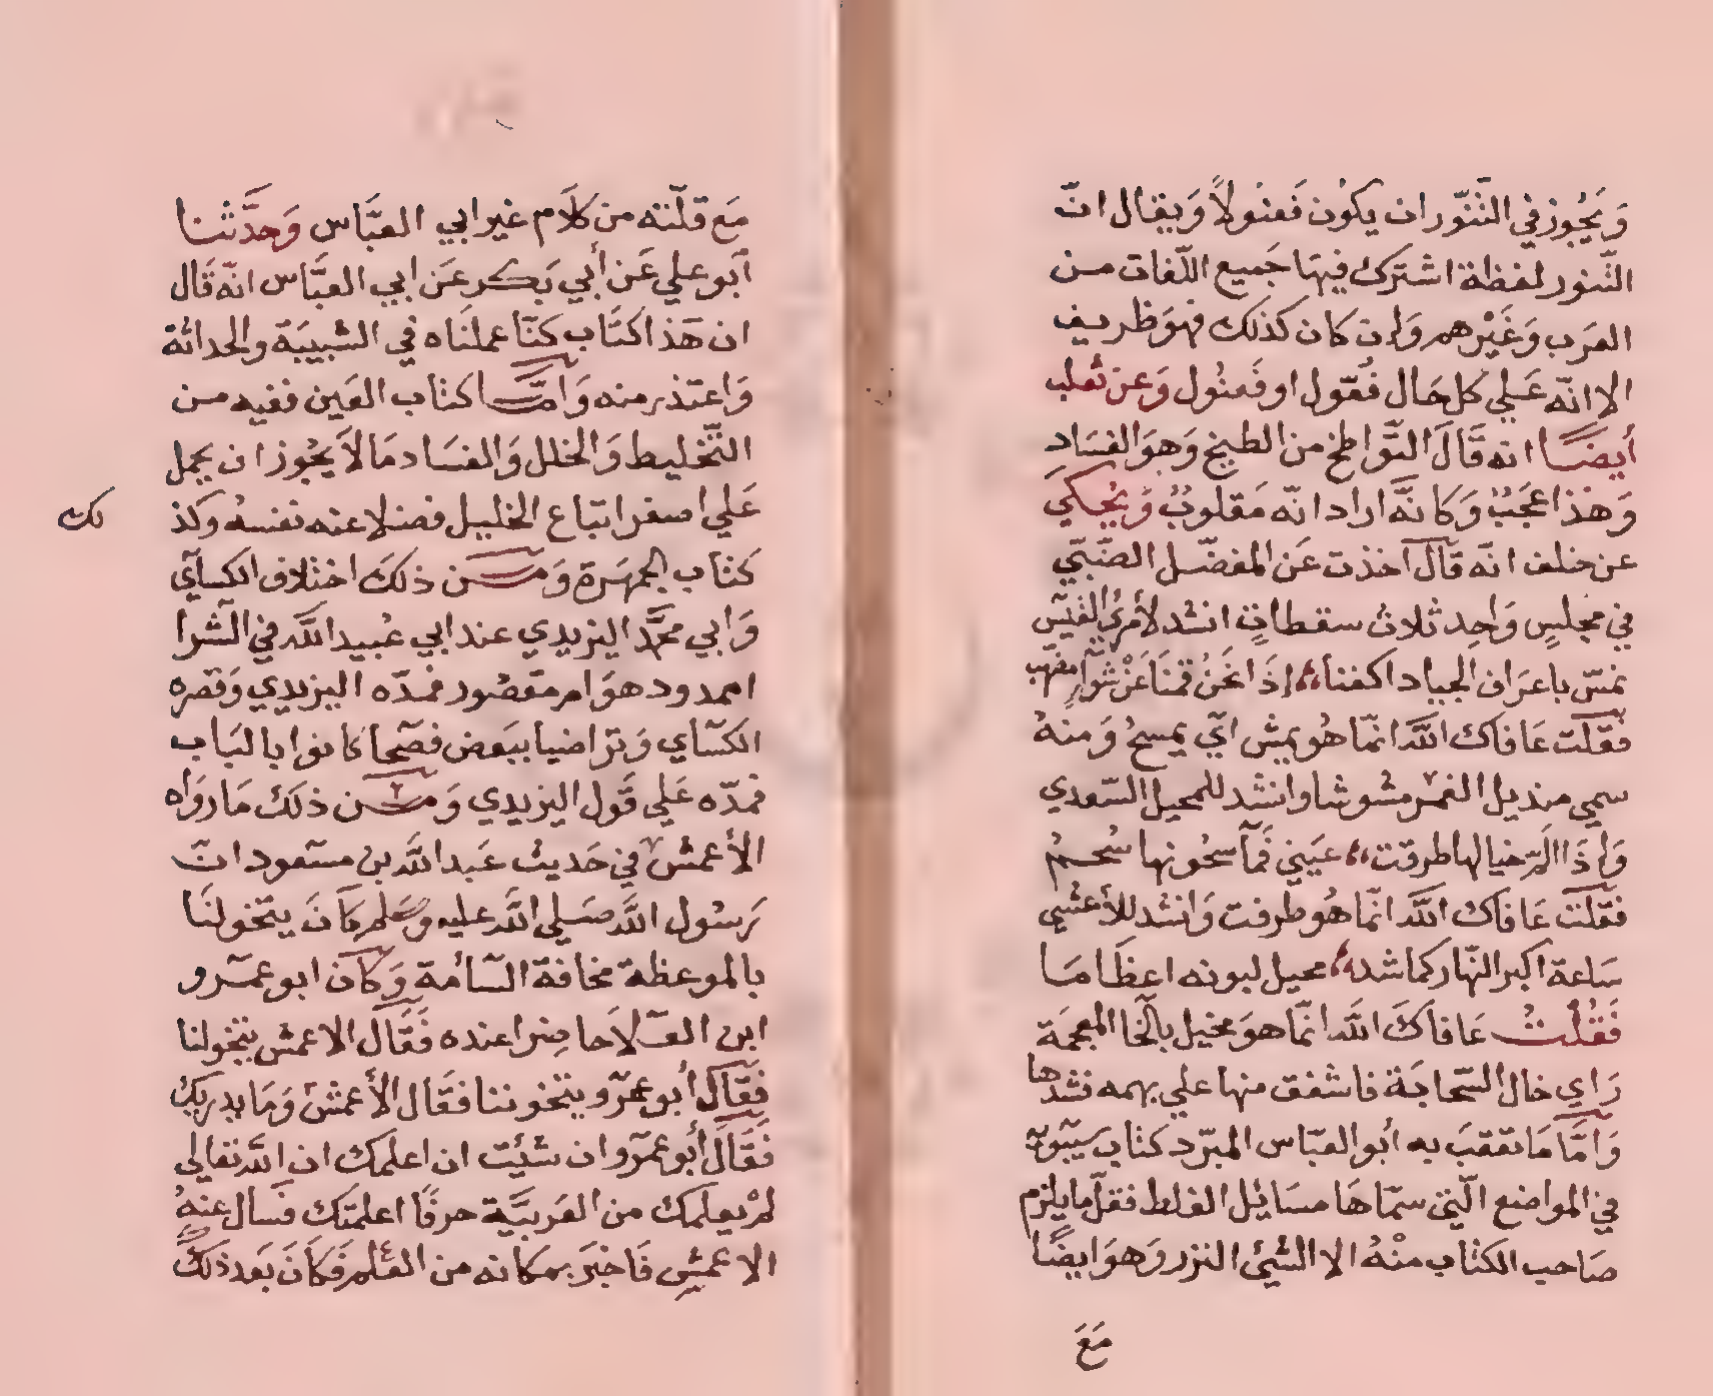 وَيَجُوز في التَّنّور ان يكوُن فَعنُولاً وَيقال انّ
التّنور لفظة اشترك فيهَا جَميع اللّغات مـن
العرَب وَغَيْرهم وَان كان كذلك فهوَ ظريف
الا انّه عَلي كل حَال فُعّول او فَعنُول وَعن ثعلب
أيضًا انه قَالَ التَّواطخ من الطبيخ وَهوَ الفسَاد
وَهَذا عجَبُ وَكانهَّ اراد انّه مَقلوبُ وَيُحكي
عن خلف انّه قالَ اخذت عَن المفضّل الضّبّي
في مجلسٍ وَاحِد ثلاث سقطاتٍ انشد لأمرئ القيس
نمسّ باعرَاف الجياد اكفنا ،، إذَا نحَنُ قمنَا عَنْ شوَآءٍ مضهب
فقلت عَافاك اللهَّ انمّا هُو يمش ايّ يمسحُ وَمنهُ
سمي منديل الغمر مشوشا وانشد للمخيل السّعدي
وَاذَا المّ خيالها طرقت ،، عَيني فَمآ شحونها سُحـمُ
فقلت عَافاك اللَّه انمّا هُو طرفت وَانشد للأعشي
سَاعة اكبر النّهار كما شد ،، محيل لبونه اعظَامَـا
فَقُلْتُ عَافاَكَ اللَّه انمّا هوَ مخيل بالَخا المعجمَة
رَاي خال السّحابَة فاشفق منها علي بهمه فشدها
وَامَّا مَا تعقبَ به أبو العَبّاس المبرّد كتاب سيبَويه
في المواضع الّتي سمّاهَا مسَائِل الغلط فقلّ ما يلزم
صَاحب الكتاب منْهُ الا الشّيئ النزر وَهوَ ايضًا
مَعَ
مَع قلّته من كَلاَم غير ابي العبَّاس وَحدَّثنـا
أبو علي عَن أبي بَكـر عَن ابي العبَّاس انّه قَال
ان هَذا كتَاب كنّا عملنَاه في الشبيبَة والحداثة
وَاعتذر منه وَامَّـا كتاب العَين ففيه مـن
التّخليط وَالخلل وَالفسَاد مَا لاَ يجُوز ان يحمل
عَلي اصغر اتباع الخليل فضلا عنه نفسهُ وكذ
لك
كتاب الجمهَرة وَمـن ذلكَ اختلاف الكسآي
وَابي محمَّد اليزيدي عند ابي عُبيد اللَّه في الشرآ
امدود هوَ ام مقصُور فمدّه اليزيدي وَقصره
الكسآي وَتراضيا ببَعض فصَحا كانوا بالبَاب
فمدّه عَلي قَول اليزيدي وَمـن ذلك مَا روَاه
الأعمش في حَديث عَبد اللَّه بن مسَعود انّ
رَسُول اللَّه صَلي اللَّه عليه وَسَلم كاَنَ يتخولنَا
بالموعظة مخافة السّآمة وَكان ابو عمرو
ابن العَـلاَ حاضِرا عنده فَقَال الاعمش يتخولنا
فَقَال أبو عمرو يتخوننا فقَال الأعمش وَمَا يدريكَ
فَقَالَ أبو عمرو ان شئِت ان اعلمك ان اللَّه تعَالي
لمْ يعلمك من العَربيَّة حرفًا اعلمتك فسَال عنهُ
الاعمش فَاخبَر بمكانه من العلم فَكاَنَ بَعد ذلكَ